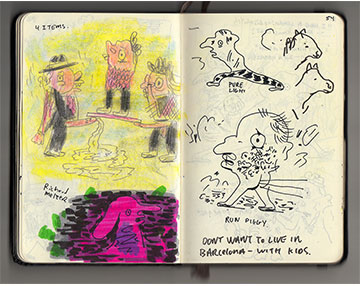 4 ITEMS.
Richard
54
PURE
LIGHT
RUN PIGGY.
DON'T WANT TO LIVE IN
BARCELONA – WITH KIDS.